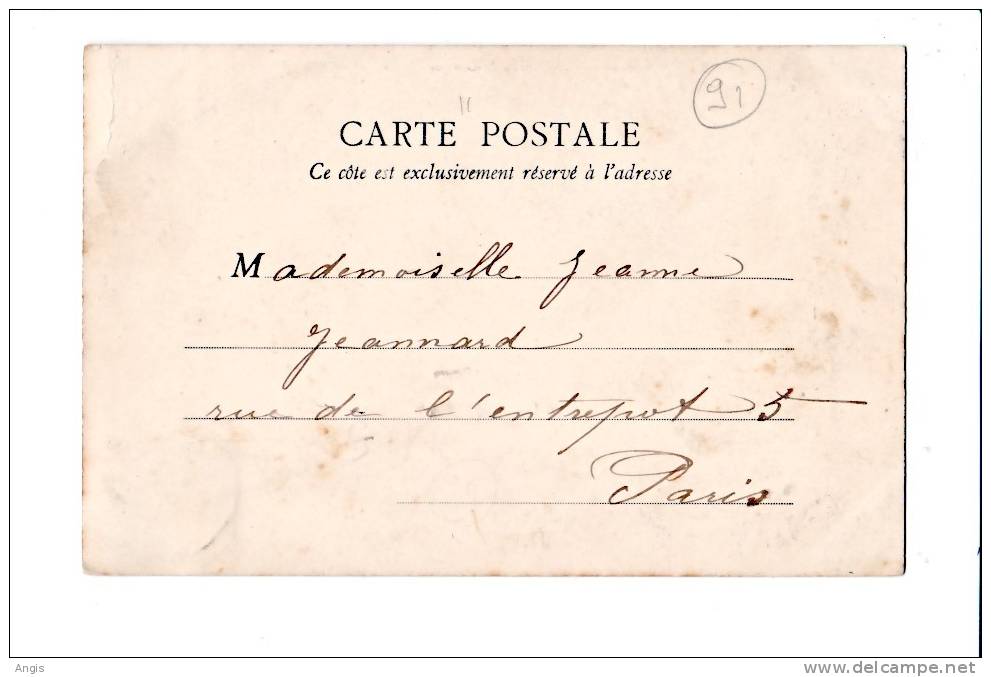 91
CARTE POSTALE
Ce côte est exclusivement réservé à l'adresse
Mademoiselle Jeanne
Jeannard
rue de l'entrepot 5
Paris
Angis
www.delcampe.net